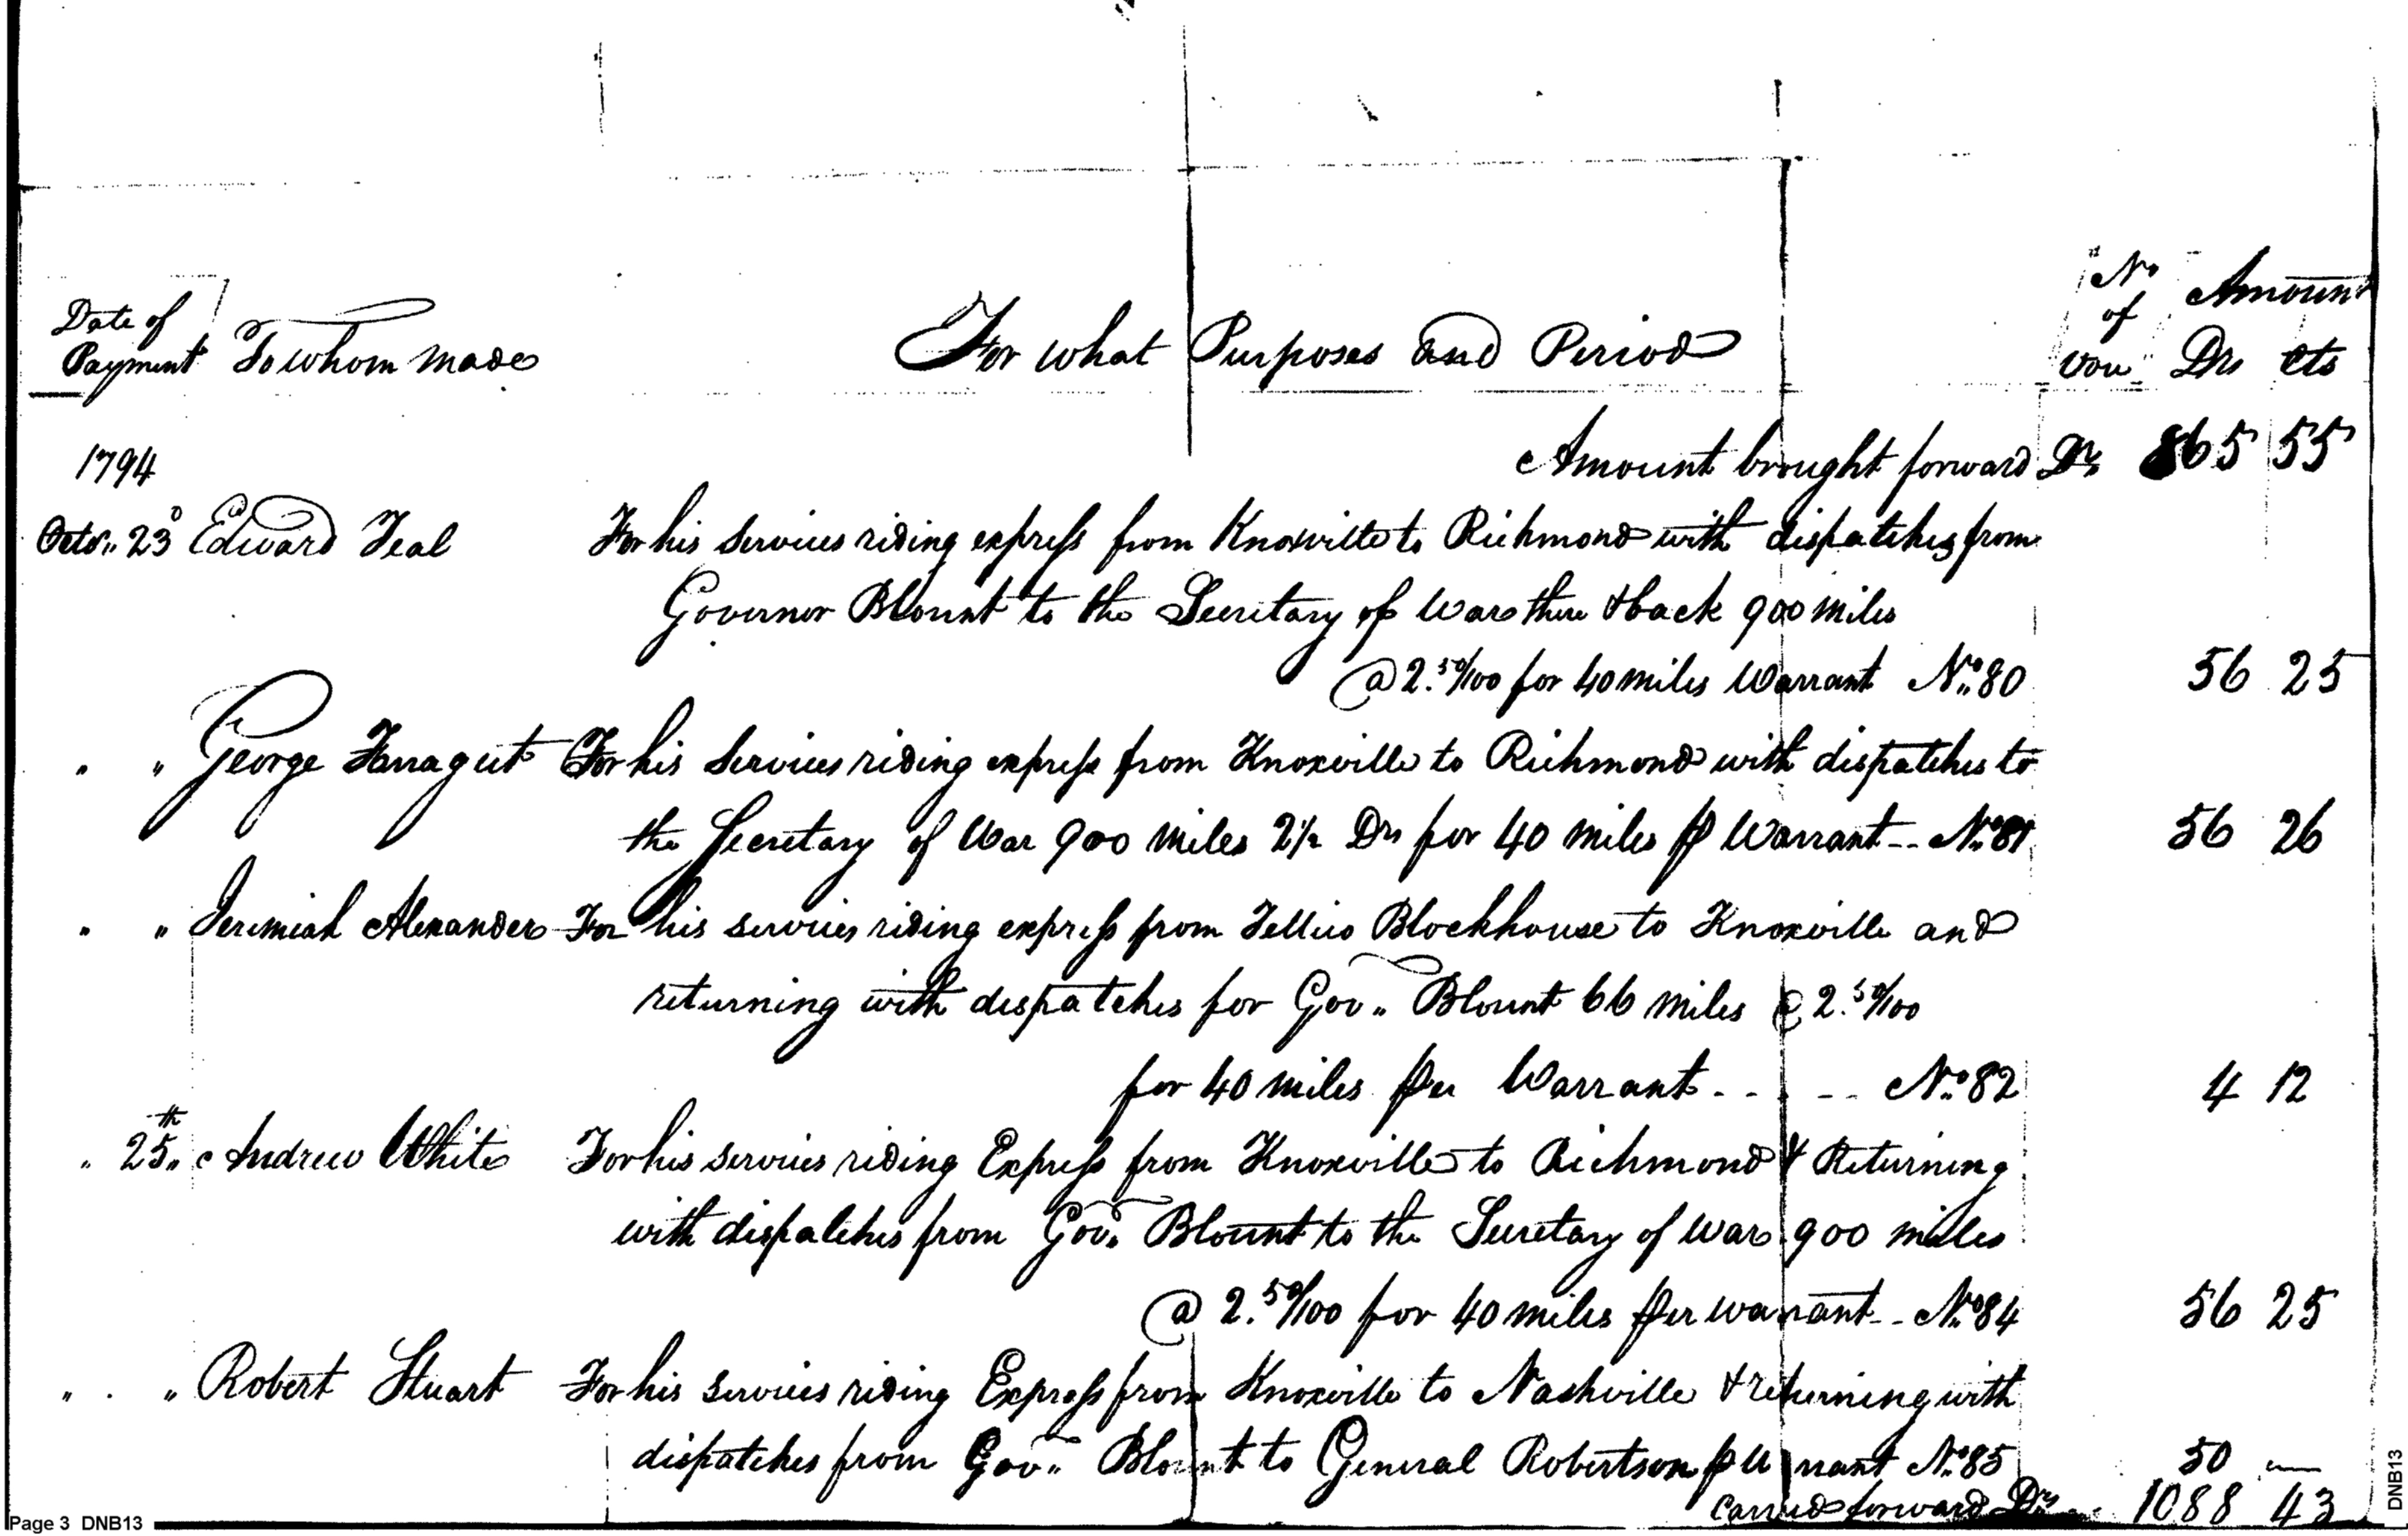 Date of Payment To whom made For what Purposes and Period No of Vou Amount Drs cts
1794 Amount brought forward Drs 865 55
Octr. 23d Edward Teal For his services riding express from Knoxville to Richmond with dispatches from
Governor Blount to the Secretary of War there & back 900 miles
@ 2.50/100 for 40 miles Warrant No. 80 56 25
" " George Farragut For his services riding express from Knoxville to Richmond with dispatches to
the Secretary of War 900 miles 2 1/2 Drs for 40 miles p Warrant -- No. 81 56 26
" " Jeremiah Alexander For his services riding express from Tellico Blockhouse to Knoxville and
returning with dispatches for Gov. Blount 66 miles @ 2.50/100
for 40 miles per Warrant - - - - No. 82 4 12
" 25th " Andrew White For his services riding Express from Knoxville to Richmond & Returning
with dispatches from Gov. Blount to the Secretary of War 900 miles
@ 2.50/100 for 40 miles per warrant -- No. 84 56 25
" " Robert Stuart For his services riding Express from Knoxville to Nashville & returning with
dispatches from Gov. Blount to General Robertson p Warrant No. 85 50 —
Carried forward Drs 1088 43
Page 3 DNB13
DNB13